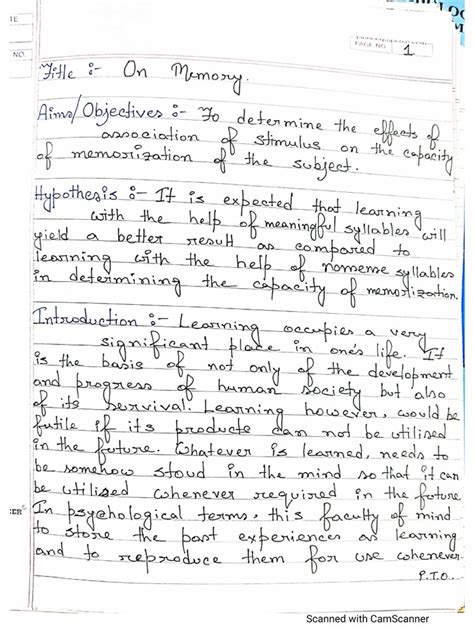 PAGE NO. 1
NO.
Title :- On Memory.
Aims/Objectives :- To determine the effects of
association of stimulus on the capacity
of memorization of the subject.
Hypothesis :- It is expected that learning
with the help of meaningful syllables will
yield a better result as compared to
learning with the help of nonsense syllables
in determining the capacity of memorization.
Introduction :- Learning occupies a very
significant place in one's life. It
is the basis of not only of the development
and progress of human society but also
of its survival. Learning however, would be
futile if its products can not be utilised
in the future. Whatever is learned, needs to
be somehow stoud in the mind so that it can
be utilised whenever required in the future
In psychological terms, this faculty of mind
to store the past experiences as learning
and to reproduce them for use whenever
P.T.O.
Scanned with CamScanner